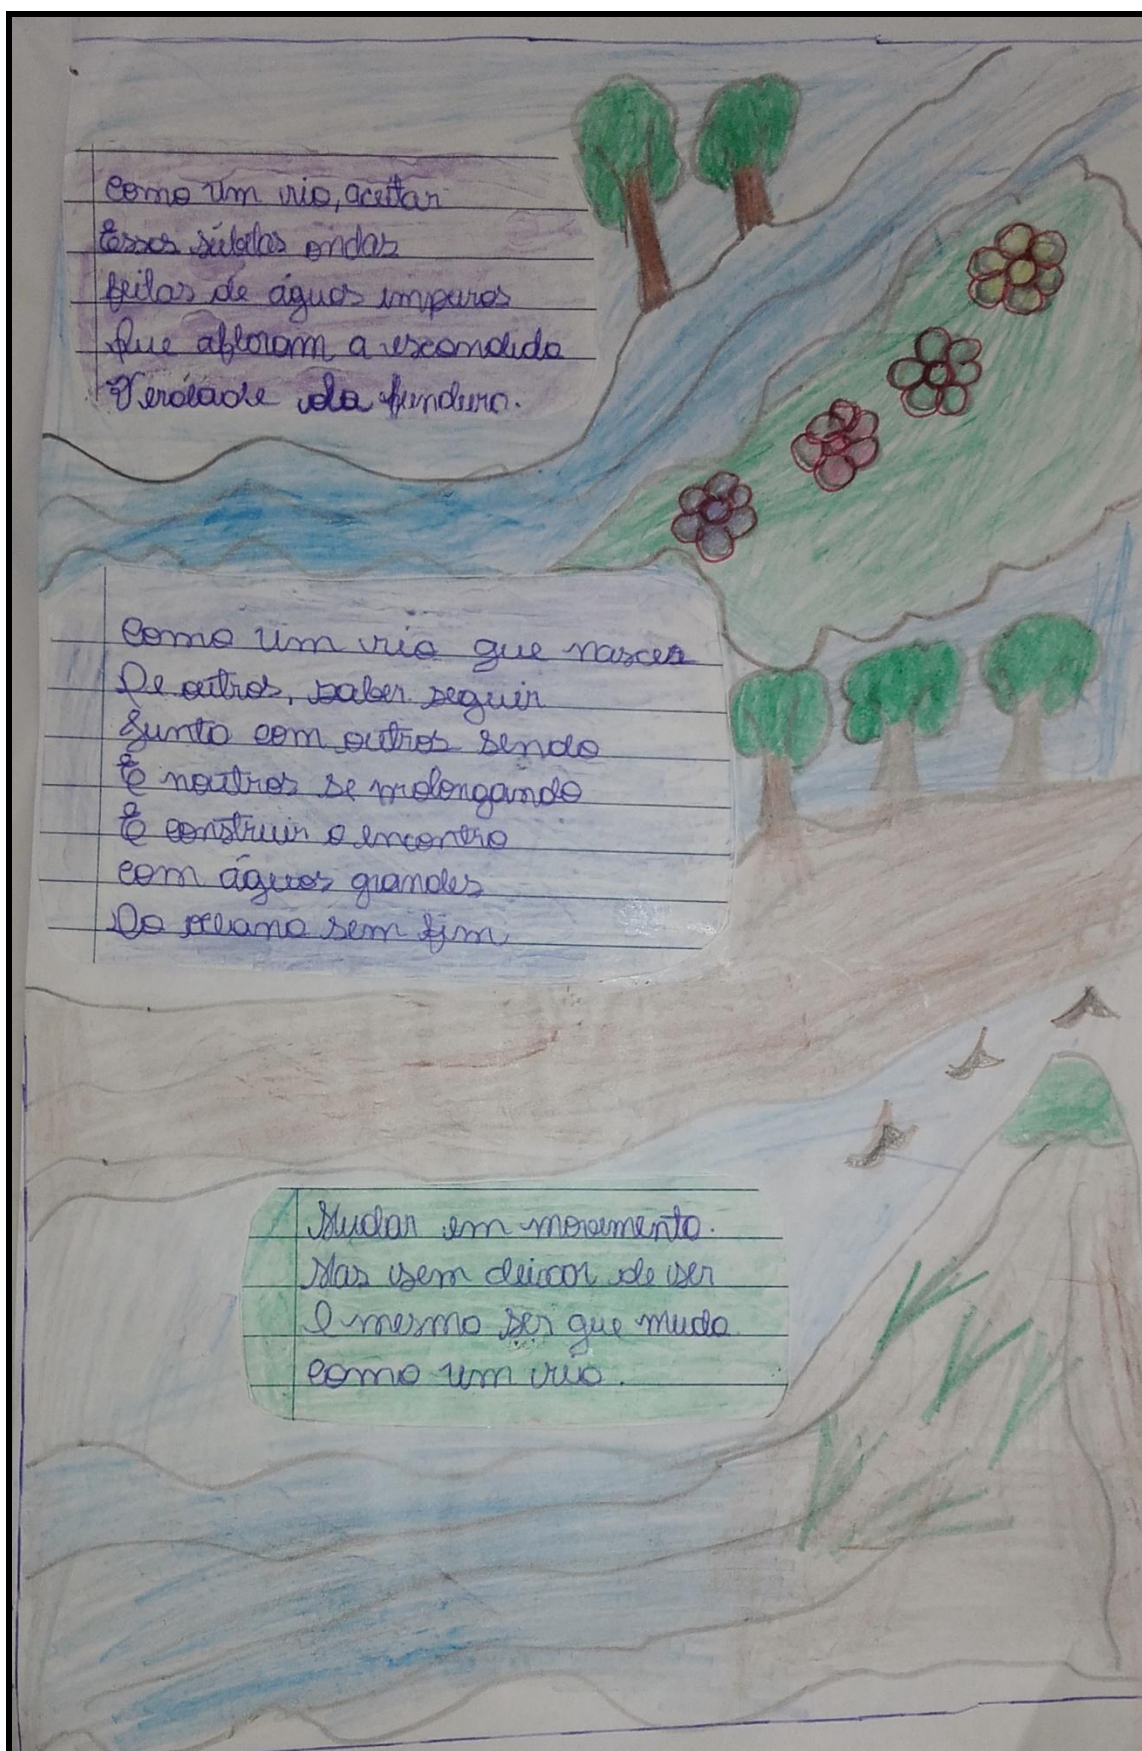 Como um rio, aceitar
Essas súbitas ondas
feitas de águas impuras
Que afloram a escondida
Verdade da fundura.
Como um rio que nasces
De outros, saber seguir
Junto com outros sendo
E noutros se prolongando
E construir o encontro
com águas grandes
Do oceano sem fim
Mudar em movimento.
Mas sem deixar de ser
O mesmo ser que muda
Como um rio.